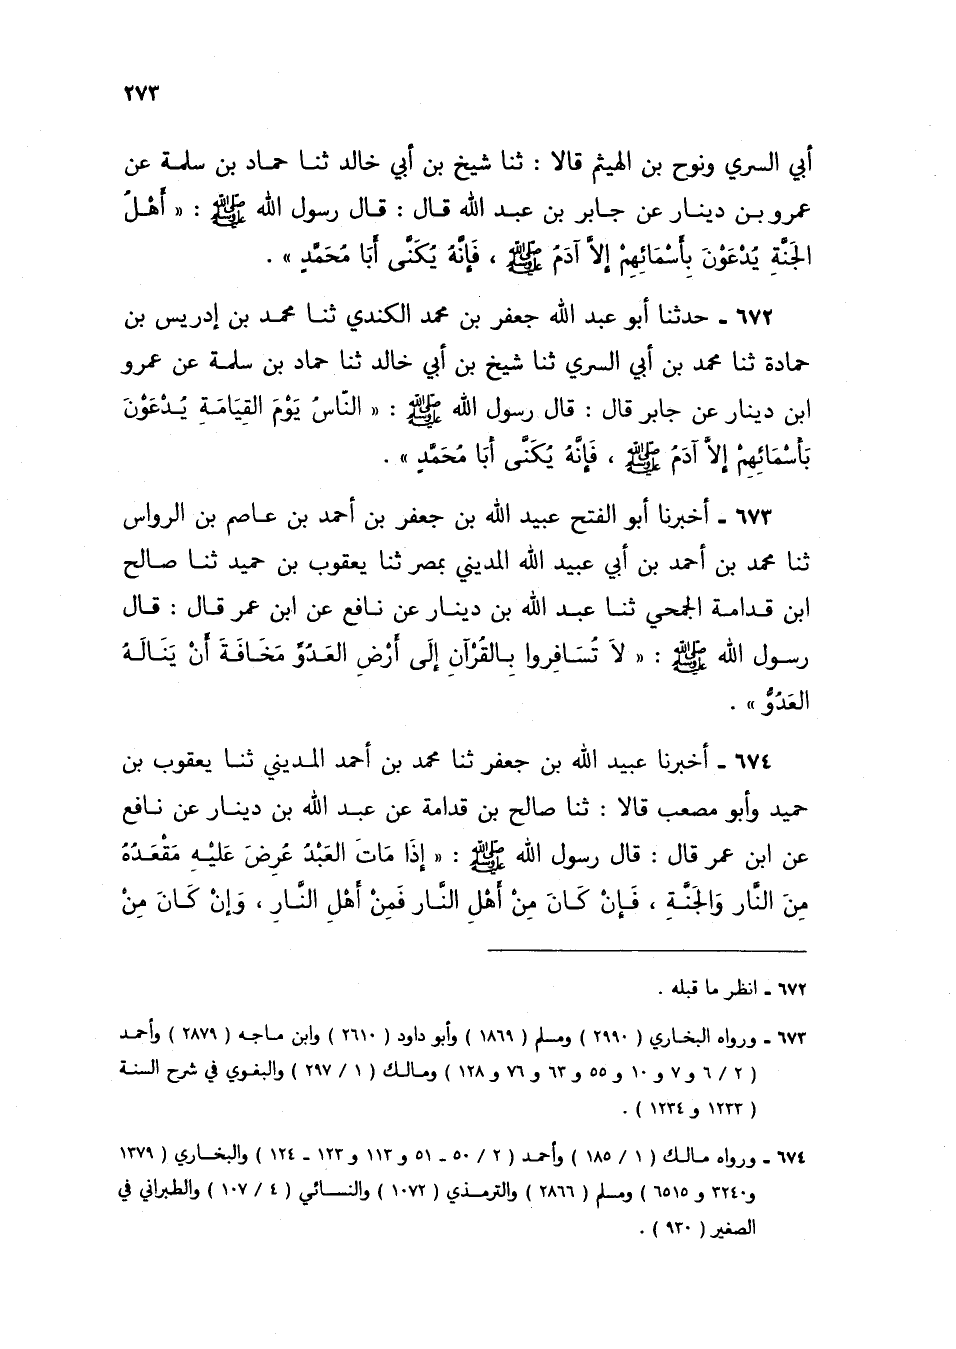 ٢٧٣
أبي السري ونوح بن الهيثم قالا : ثنا شيخ بن أبي خالد ثنـا حمـاد بن سلمـة عن
عمرو بـن دينـار عن جـابر بن عبـد الله قـال : قـال رسول الله ﷺ : « أَهْـلُ
الجَنَّةِ يُدْعَوْنَ بِأَسْمَائِهِمْ إِلاَّ آدَمُ ﷺ ، فَإِنَّهُ يُكَنَّى أَبَا مُحَمَّدٍ » .
٦٧٢ ـ حدثنا أبو عبد الله جعفر بن محمد الكندي ثنـا محمـد بن إدريس بن
حمادة ثنا محمد بن أبي السري ثنا شيخ بن أبي خالد ثنا حماد بن سلمـة عن عمرو
ابن دينار عن جابر قال : قال رسول الله ﷺ : « النَّاسُ يَوْمَ القِيَامَـةِ يُـدْعَوْنَ
بَأَسْمَائِهِمْ إِلاَّ آدَمُ ﷺ ، فَإِنَّهُ يُكَنَّى أَبَا مُحَمَّدٍ » .
٦٧٣ ـ أخبرنا أبو الفتح عبيد الله بن جعفر بن أحمد بن عـاصم بن الرواس
ثنا محمد بن أحمد بن أبي عبيد الله المديني بمصر ثنا يعقوب بن حميد ثنـا صـالح
ابن قـدامـة الجمحي ثنـا عبـد الله بن دينـار عن نـافع عن ابن عمر قـال : قـال
رسـول الله ﷺ : « لاَ تُسَـافِروا بِـالقُرْآنِ إِلَى أَرْضِ العَـدُوِّ مَخَـافَـةَ أَنْ يَنَـالَـهُ
العَدُوُّ » .
٦٧٤ ـ أخبرنا عبيد الله بن جعفر ثنا محمد بن أحمد المـديني ثنـا يعقوب بن
حميد وأبو مصعب قالا : ثنا صالح بن قدامة عن عبـد الله بن دينـار عن نافع
عن ابن عمر قال : قال رسول الله ﷺ : « إِذَا مَاتَ العَبْدُ عُرِضَ عَلَيْـهِ مَقْعَـدُهُ
مِنَ النَّارِ وَالجَنَّـةِ ، فَـإِنْ كَـانَ مِنْ أَهْلِ النَّـارِ فَمِنْ أَهْلِ النَّـارِ ، وَإِنْ كَـانَ مِنْ
٦٧٢ ـ انظر ما قبله .
٦٧٣ ـ ورواه البخـاري ( ٢٩٩٠ ) ومسلم ( ١٨٦٩ ) وأبو داود ( ٢٦١٠ ) وابن مـاجـه ( ٢٨٧٩ ) وأحمـد
( ٢ / ٦ و ٧ و ١٠ و ٥٥ و ٦٣ و ٧٦ و ١٢٨ ) ومـالـك ( ١ / ٢٩٧ ) والبغوي في شرح السنـة
( ١٢٣٣ و ١٢٣٤ ) .
٦٧٤ ـ ورواه مـالـك ( ١ / ١٨٥ ) وأحمـد ( ٢ / ٥٠ ـ ٥١ و ١١٣ و ١٢٣ ـ ١٢٤ ) والبخـاري ( ١٣٧٩
و ٣٢٤٠ و ٦٥١٥ ) ومسلم ( ٢٨٦٦ ) والترمـذي ( ١٠٧٢ ) والنسـائي ( ٤ / ١٠٧ ) والطبراني في
الصغير ( ٩٣٠ ) .